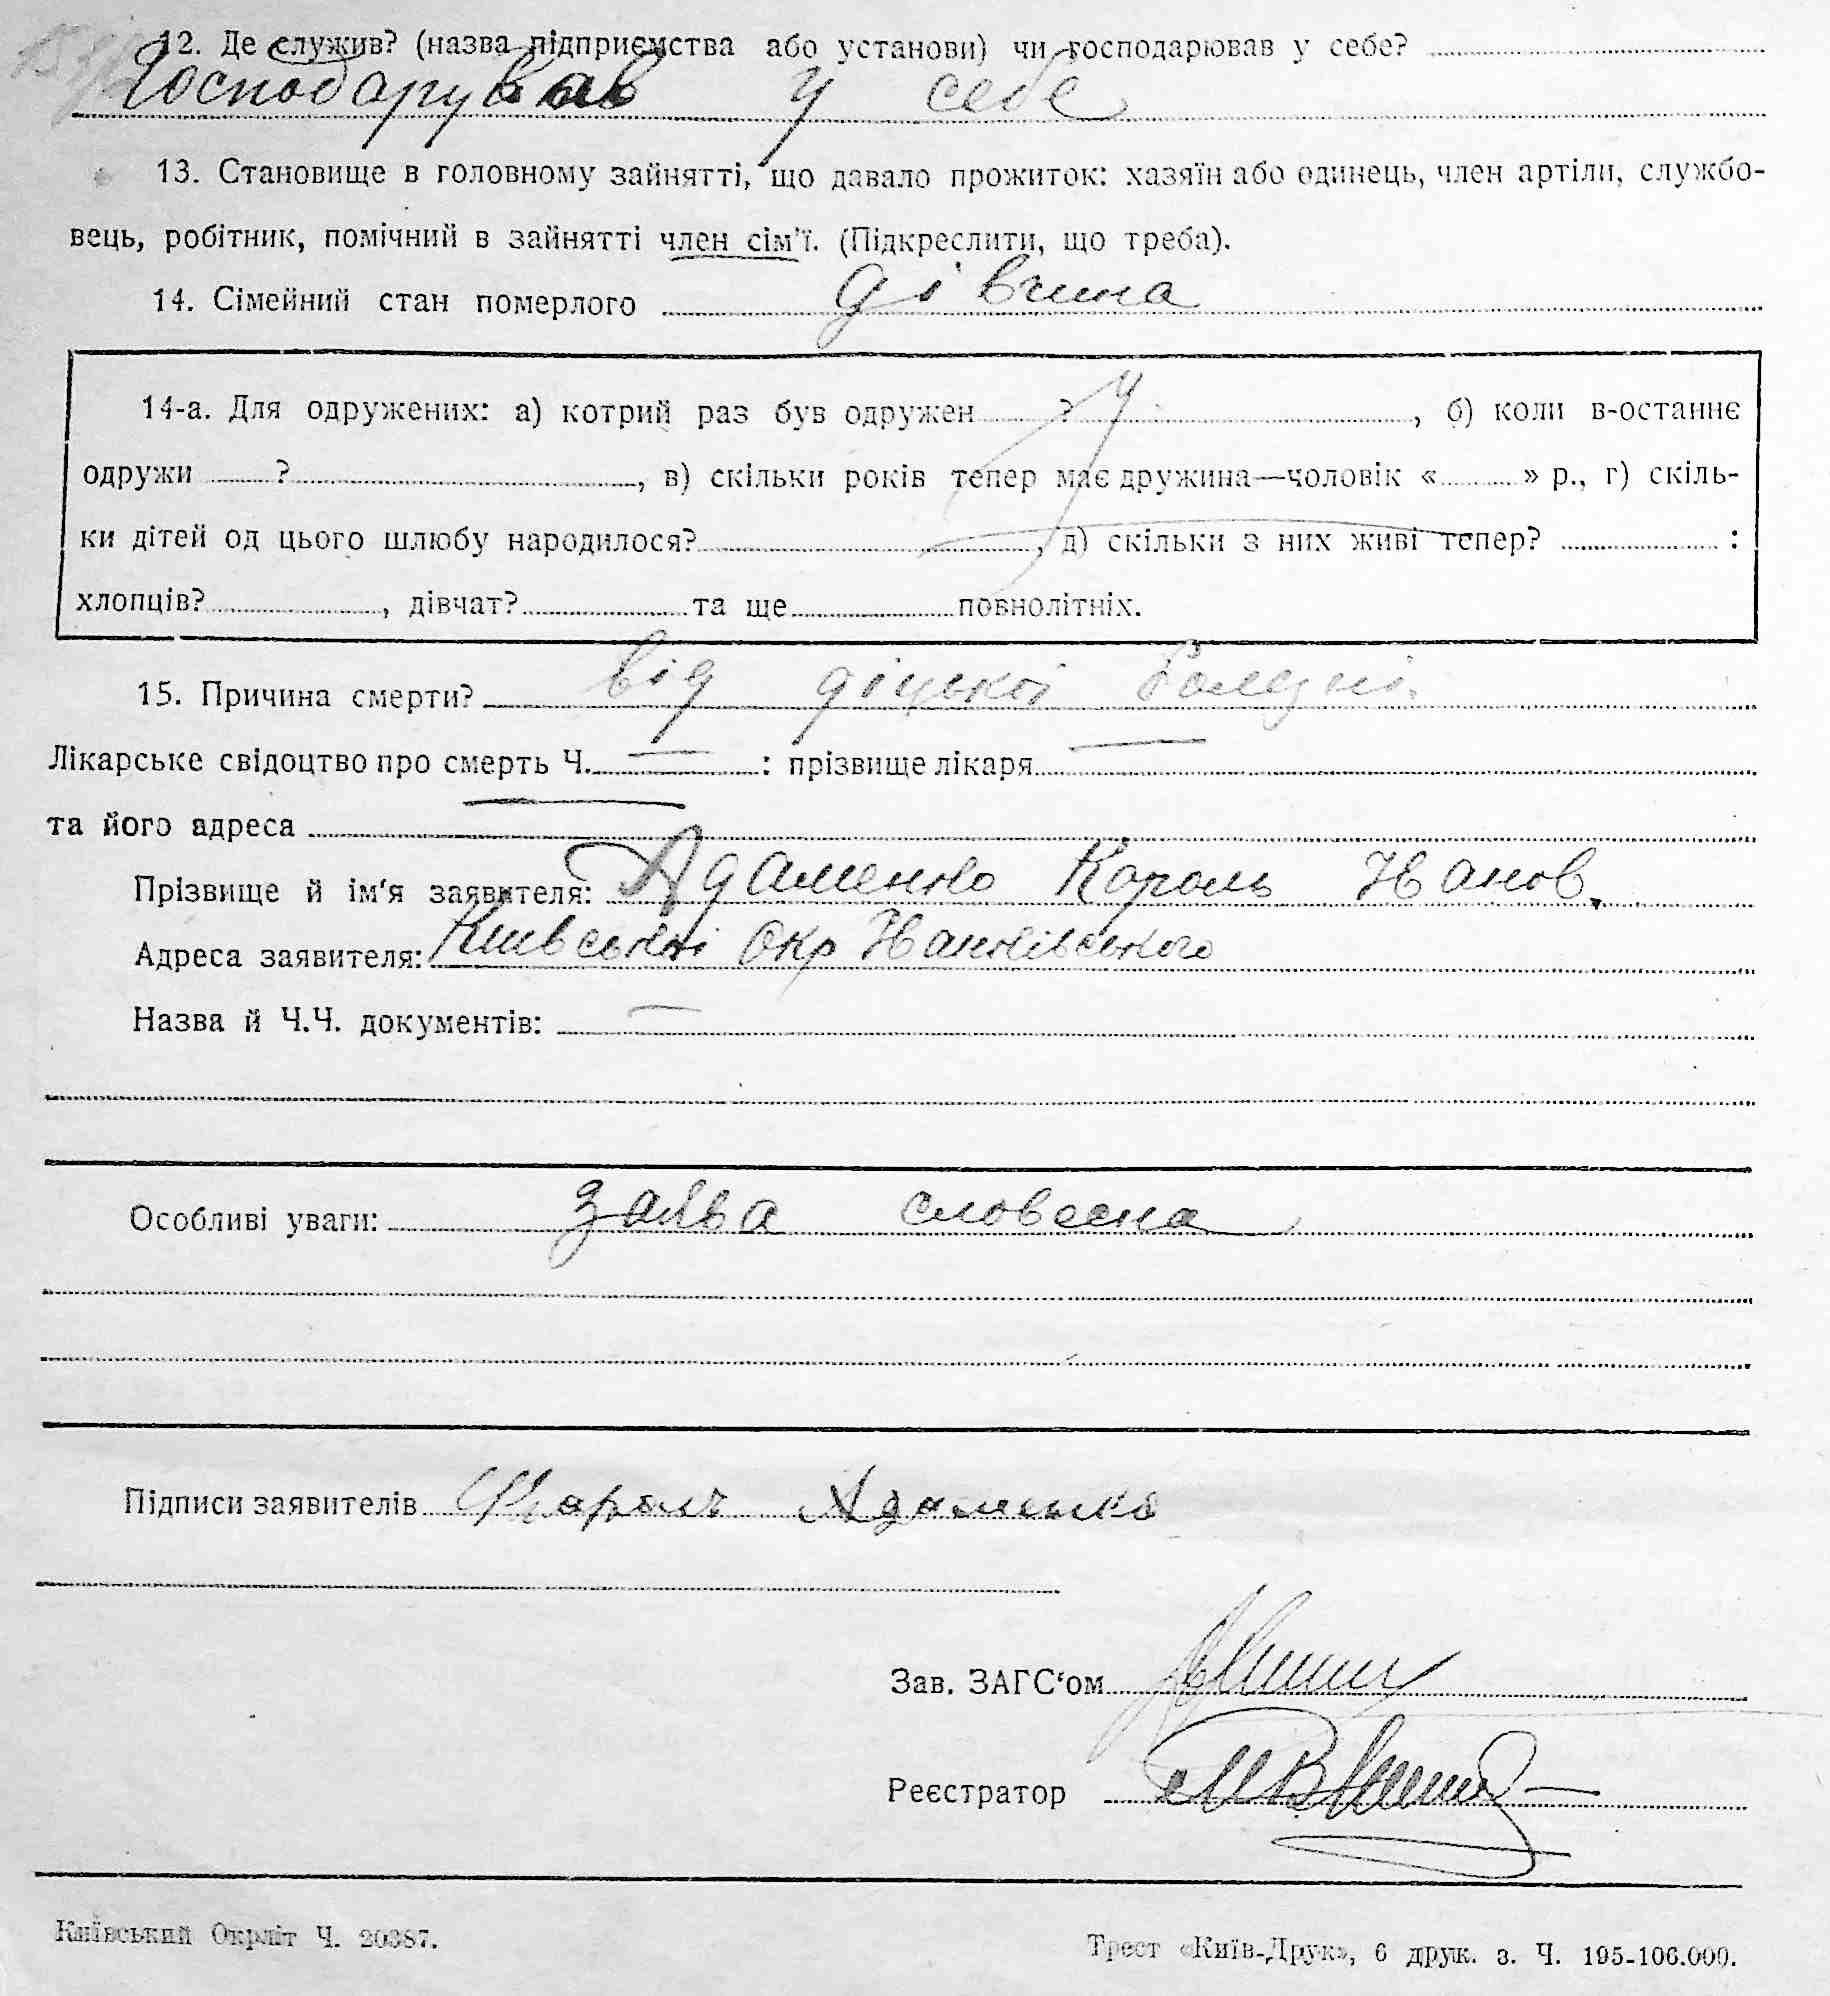 12. Де служив? (назва підприємства або установи) чи господарював у себе?
Господарував у себе
13. Становище в головному зайнятті, що давало прожиток: хазяїн або одинець, член артіли, службо-
вець, робітник, помічний в зайнятті член сім'ї. (Підкреслити, що треба).
14. Сімейний стан померлого дівчина
14-а. Для одружених: а) котрий раз був одружен ? , б) коли в-останнє
одружи ? , в) скільки років тепер має дружина—чоловік « » р., г) скіль-
ки дітей од цього шлюбу народилося? , д) скільки з них живі тепер? :
хлопців? , дівчат? та ще повнолітніх.
15. Причина смерти? від діцької болезні.
Лікарське свідоцтво про смерть Ч. — : прізвище лікаря —
та його адреса —
Прізвище й ім'я заявителя: Адаменко Король Иванов.
Адреса заявителя: Київської Окр Иванківського
Назва й Ч.Ч. документів: —
Особливі уваги: Заява словесна
Підписи заявителів Кароль Адаменко
Зав. ЗАГС'ом
Реєстратор
Київський Окрліт Ч. 20387.
Трест «Київ-Друк», 6 друк. з. Ч. 195-106.000.